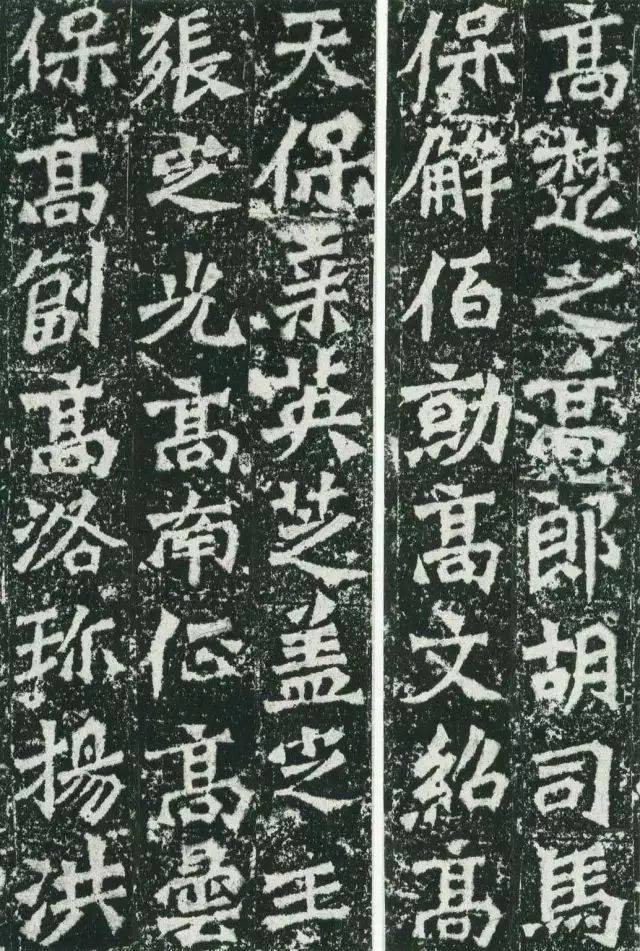 高楚之高郎胡司馬
保解佰勍高文紹高
天保桒英芝盖芝王
張芝光高南征高曇
保高副高洛珎揚洪